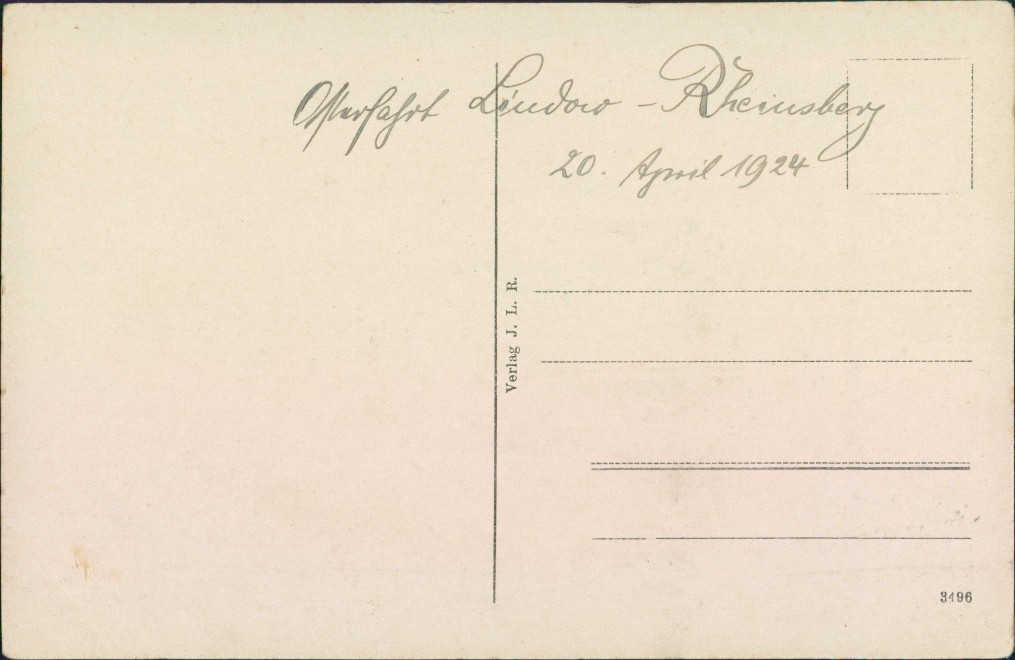 Osterfahrt Lindow - Rheinsberg
20. April 1924
Verlag J. L. R.
3496